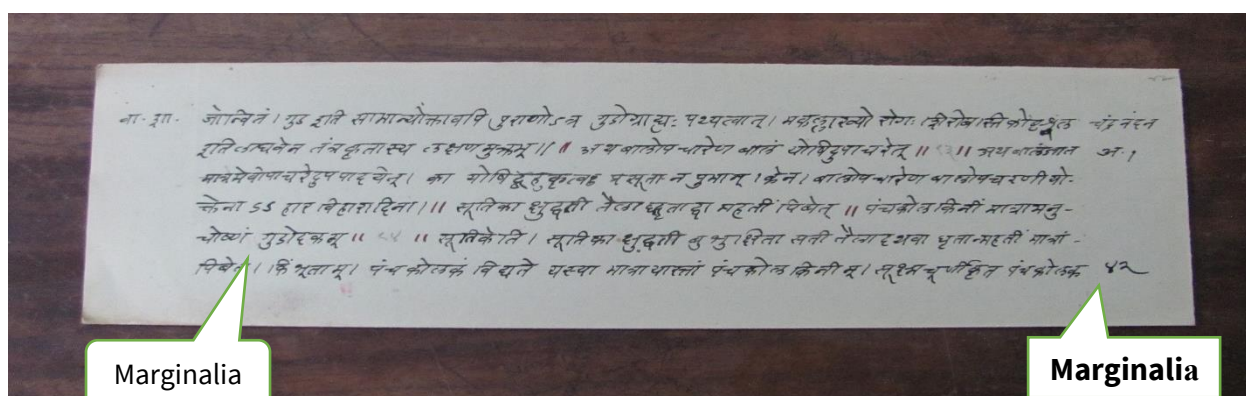 वा. शा. जोन्वितं। गुड इति सामान्योक्तावपि पुराणोऽत्र गुडोग्राह्यः पथ्यत्वात्। मक्कल्लाख्यो रोगः शिरोबस्तिकोष्ठशूल चंद्रनंदन
इति तंत्रकृतास्य लक्षणमुक्तम्॥ ॥ अथ बालोपचारेण बालं योषिदुपाचरेत् ॥ ॥ अथ बालंजात अ. १
मात्रमेवोपाचरेदुपपादयेत्। का योषित् प्रसूता न पुमान्। केन। बालोपचारेण बालोपचरणीयो-
क्तेनाऽऽहारविहारादिना।॥ सूतिका क्षुद्वती तैलाद्घृताद्वा महतीं पिबेत् ॥ पंचकोलकिनीं मात्रामनु-
चोष्णं गुडोदकम् ॥ ॥ सूतिकेति। सूतिका क्षुद्वती बुभुक्षिता सती तैलादथवा घृतान्महतीं मात्रां-
पिबेत्। किंभूताम्। पंचकोलकं विद्यते यस्या मात्रायास्तां पंचकोलकिनीम्। सूक्ष्मचूर्णीकृत पंचकोलक ४२
Marginalia
Marginalia